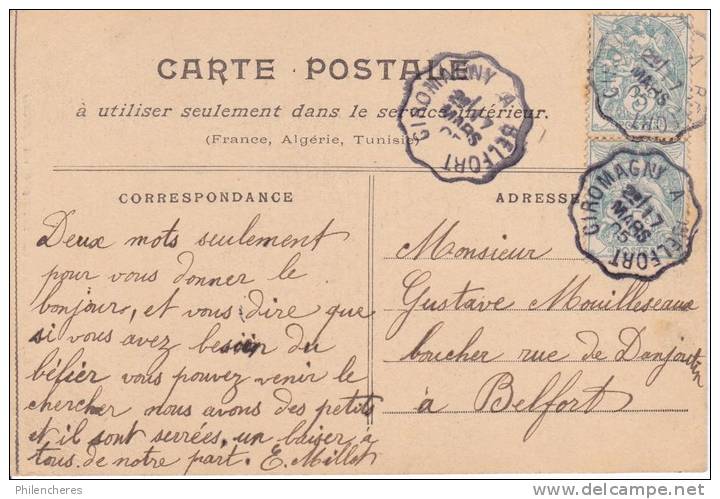 CARTE POSTALE
à utiliser seulement dans le service intérieur.
(France, Algérie, Tunisie)
CORRESPONDANCE
Deux mots seulement
pour vous donner le
bonjour, et vous dire que
si vous avez besoin du
bélier vous pouvez venir le
chercher nous avons des petits
et il sont sevrées, un baiser à
tous de notre part. E. Millot
ADRESSE
Monsieur
Gustave Mouilleseaux
boucher rue de Danjoutin
à Belfort
GIROMAGNY A BELFORT
17
MARS
05
GIROMAGNY A BELFORT
17
MARS
05
17
MARS
Philencheres
www.delcampe.net